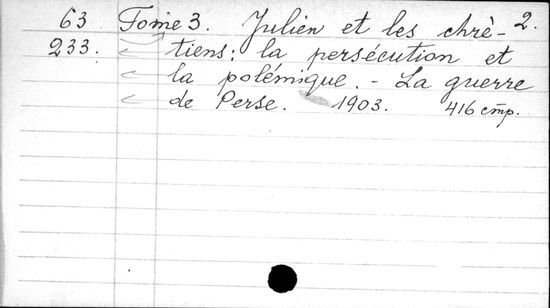 2.
63 Tome 3. Julien et les chrè-
233. tiens: la persécution et
la polémique. - La guerre
de Perse. 1903. 416 cmp.